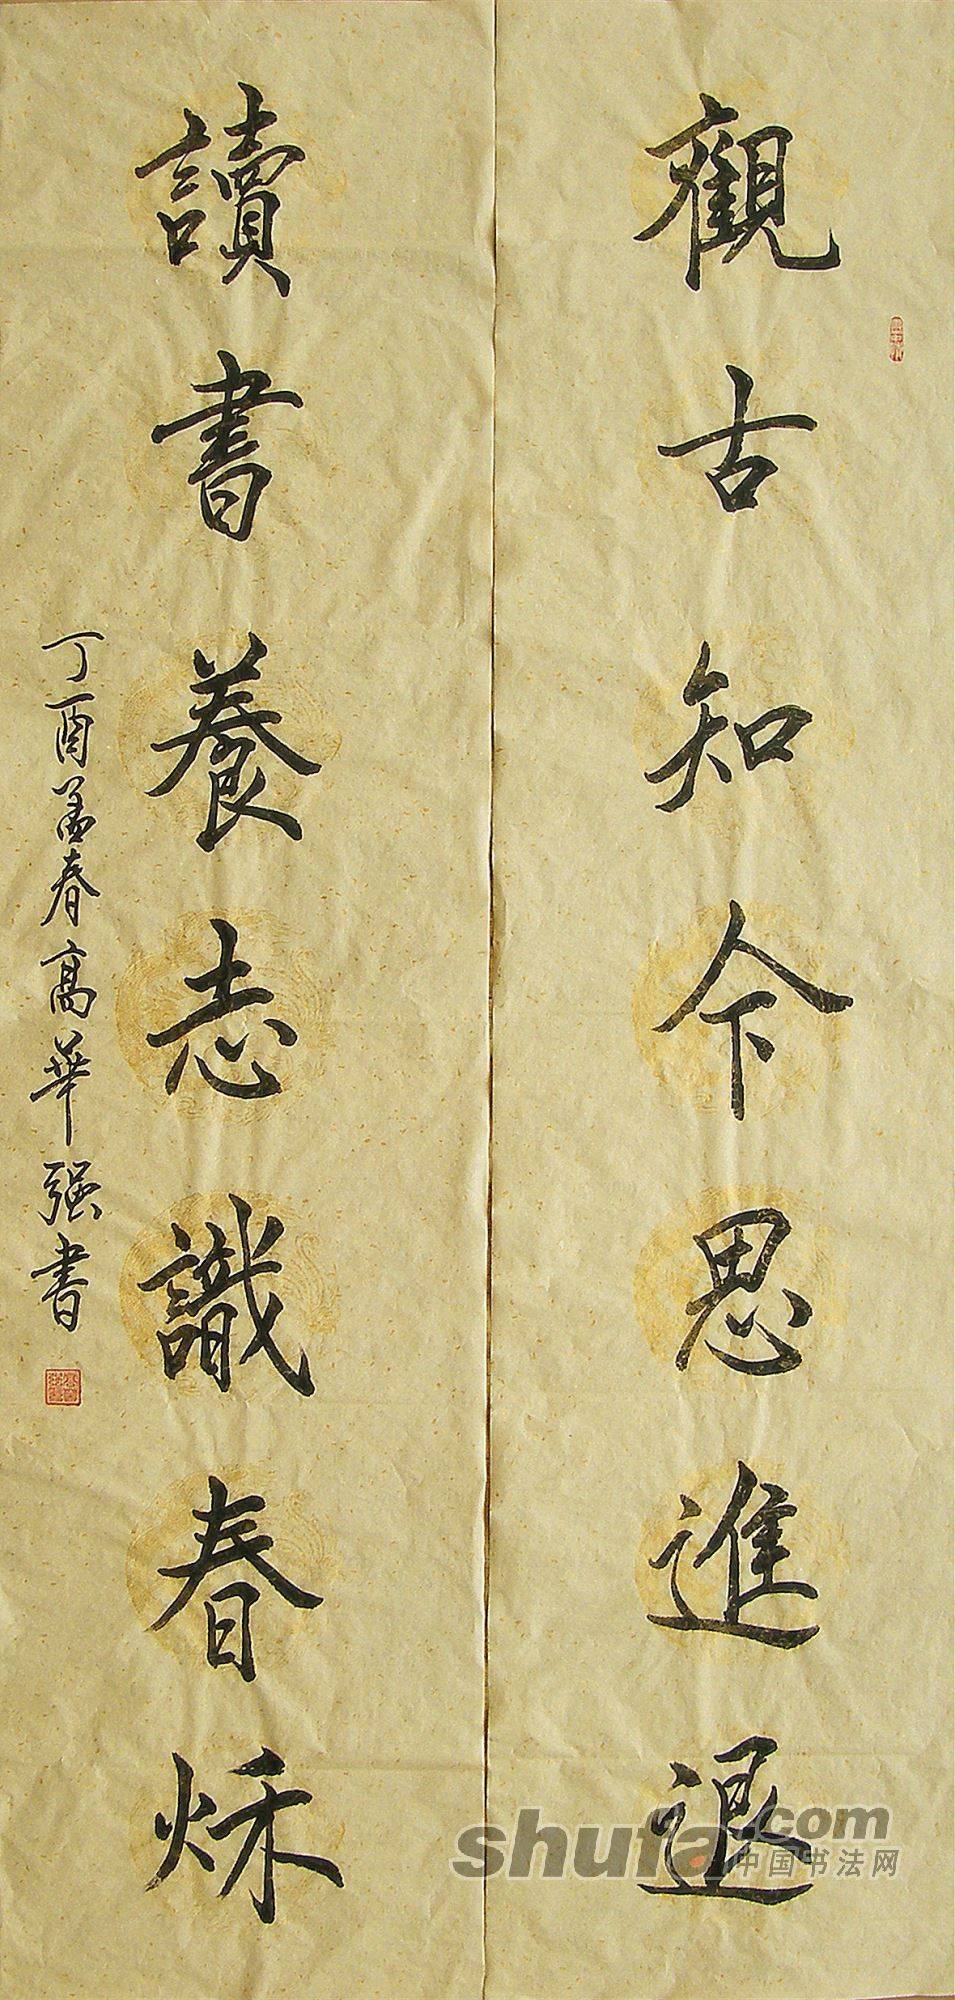 觀古知今思進退
讀書養志識春秌
丁酉孟春高華强書
shufa.com
中国书法网